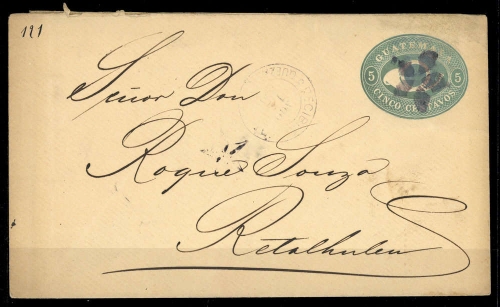 121
GUATEMALA
5 5
CINCO CENTAVOS
Señor Don
Roque Souza
Retalhuleu